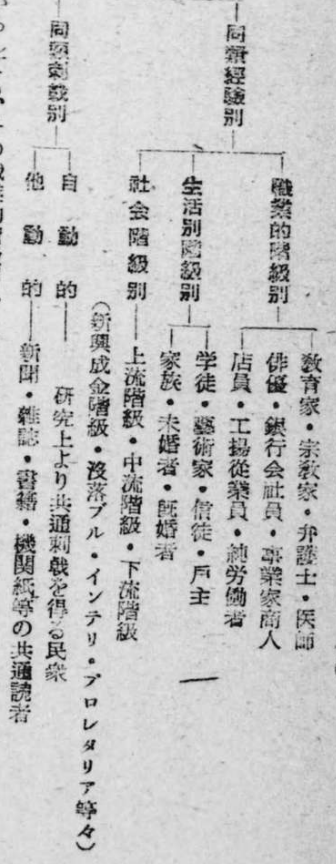 同類經驗別
職業的階級別
教育家・宗教家・弁護士・医師
俳優・銀行会社員・事業家商人
店員・工場従業員・純労働者
生活別階級別
学徒・藝術家・信徒・戸主
家族・未婚者・既婚者
社会階級別
上流階級・中流階級・下流階級
(新興成金階級・沒落ブル・インテリ・プロレタリア等々)
同類刺戟別
自動的
研究上より共通刺戟を得る民衆
他動的
新聞・雜誌・書籍・機関紙等の共通読者